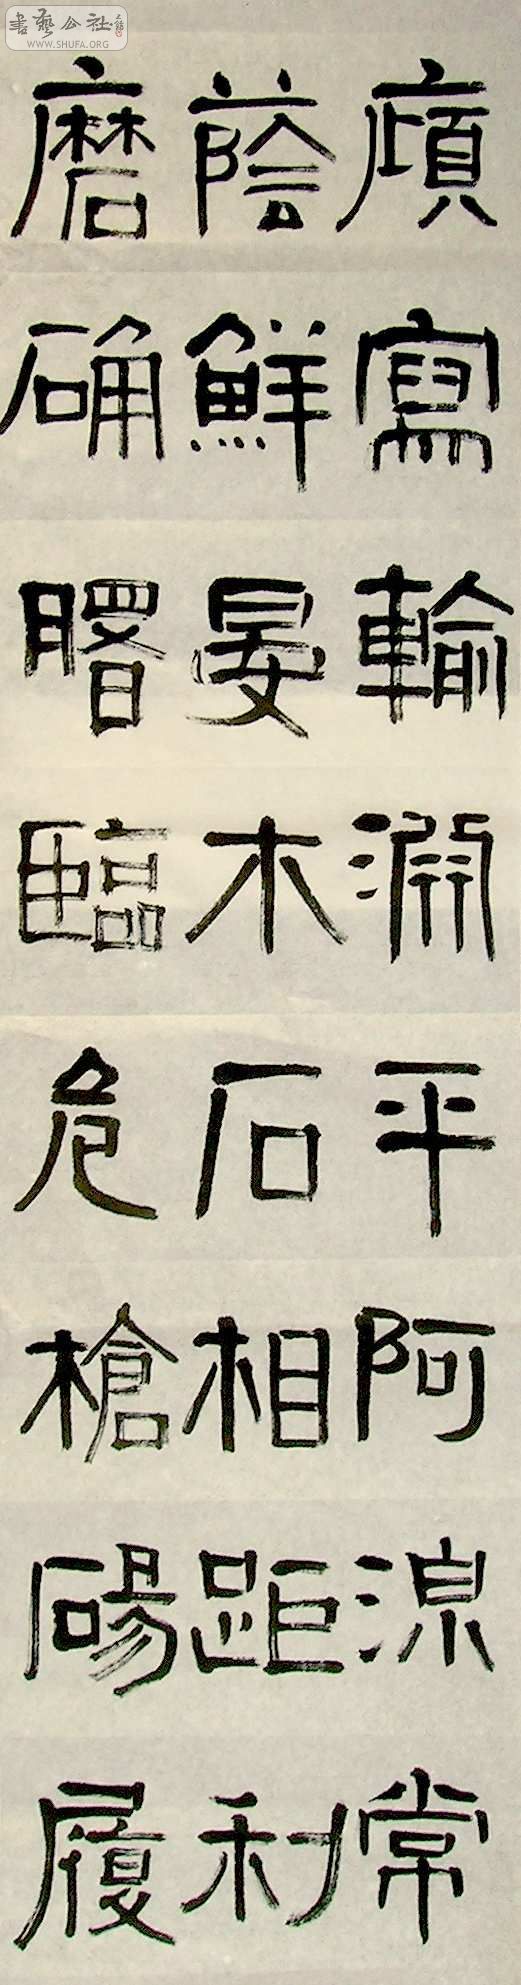 書藝公社
WWW.SHUFA.ORG
廎寫輸淵平阿湶常
蔭鮮晏木石相距利
磨确臨危槍碭履